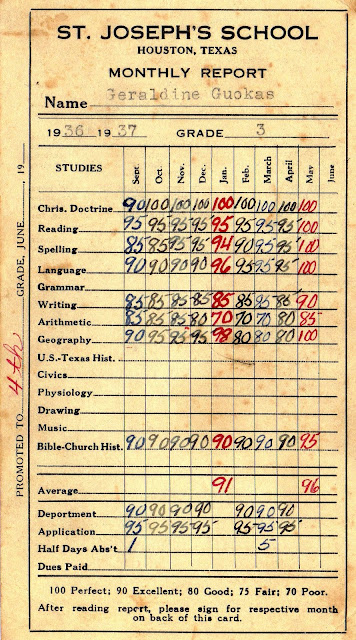 ST. JOSEPH'S SCHOOL
HOUSTON, TEXAS
MONTHLY REPORT
Name Geraldine Guokas
1936 1937 GRADE 3
STUDIES Sept. Oct. Nov. Dec. Jan. Feb. March April May June
Chris. Doctrine 90 100 100 100 100 100 100 100 100
Reading 95 95 95 95 95 95 95 95 100
Spelling 85 85 95 95 94 90 95 95 100
Language 90 90 90 90 96 95 95 95 100
Grammar
Writing 85 85 85 85 85 85 95 85 90
Arithmetic 85 85 85 80 70 70 70 80 85
Geography 90 95 95 95 98 80 80 80 100
U.S.-Texas Hist.
Civics
Physiology
Drawing
Music
Bible-Church Hist. 90 90 90 90 90 90 90 90 95
Average 91 96
Deportment 90 90 90 90 90 90 90
Application 95 95 95 95 95 95 95
Half Days Abs't 1 5
Dues Paid
100 Perfect; 90 Excellent; 80 Good; 75 Fair; 70 Poor.
After reading report, please sign for respective month
on back of this card.
PROMOTED TO 4th GRADE, JUNE, 19